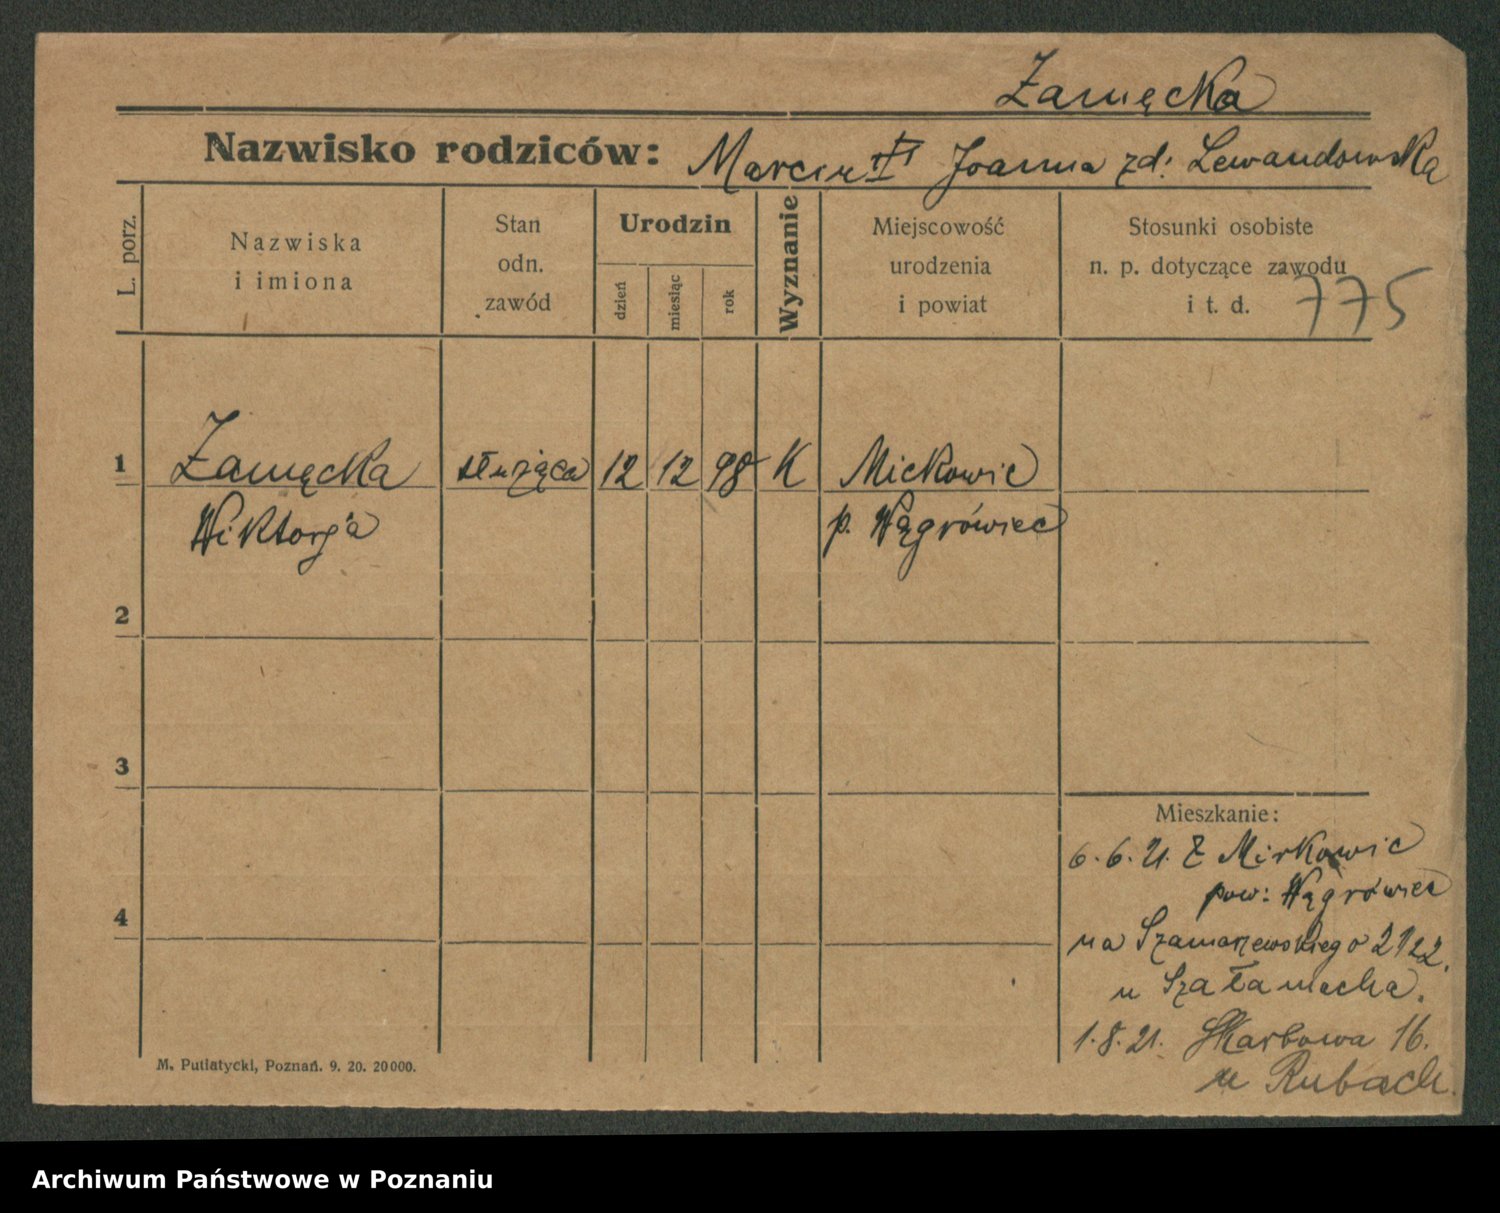 Żamęcka
Nazwisko rodziców: Marcin Joanna zd: Lewandowska
L. porz.
Nazwiska
i imiona
Stan
odn.
zawód
Urodzin
dzień
miesiąc
rok
Wyznanie
Miejscowość
urodzenia
i powiat
Stosunki osobiste
n. p. dotyczące zawodu
i t. d.
775
1 Żamęcka służąca 12 12 98 K Mickowic
Wiktorja p. Wągrówiec
2
3
4
Mieszkanie:
6.6.21. Z Mirkowic
pow: Wągrówiec
na Szamarzewskiego
u
1.8.21. Skarbowa 16.
u Rubach.
M. Putiatycki, Poznań. 9. 20. 20000.
Archiwum Państwowe w Poznaniu